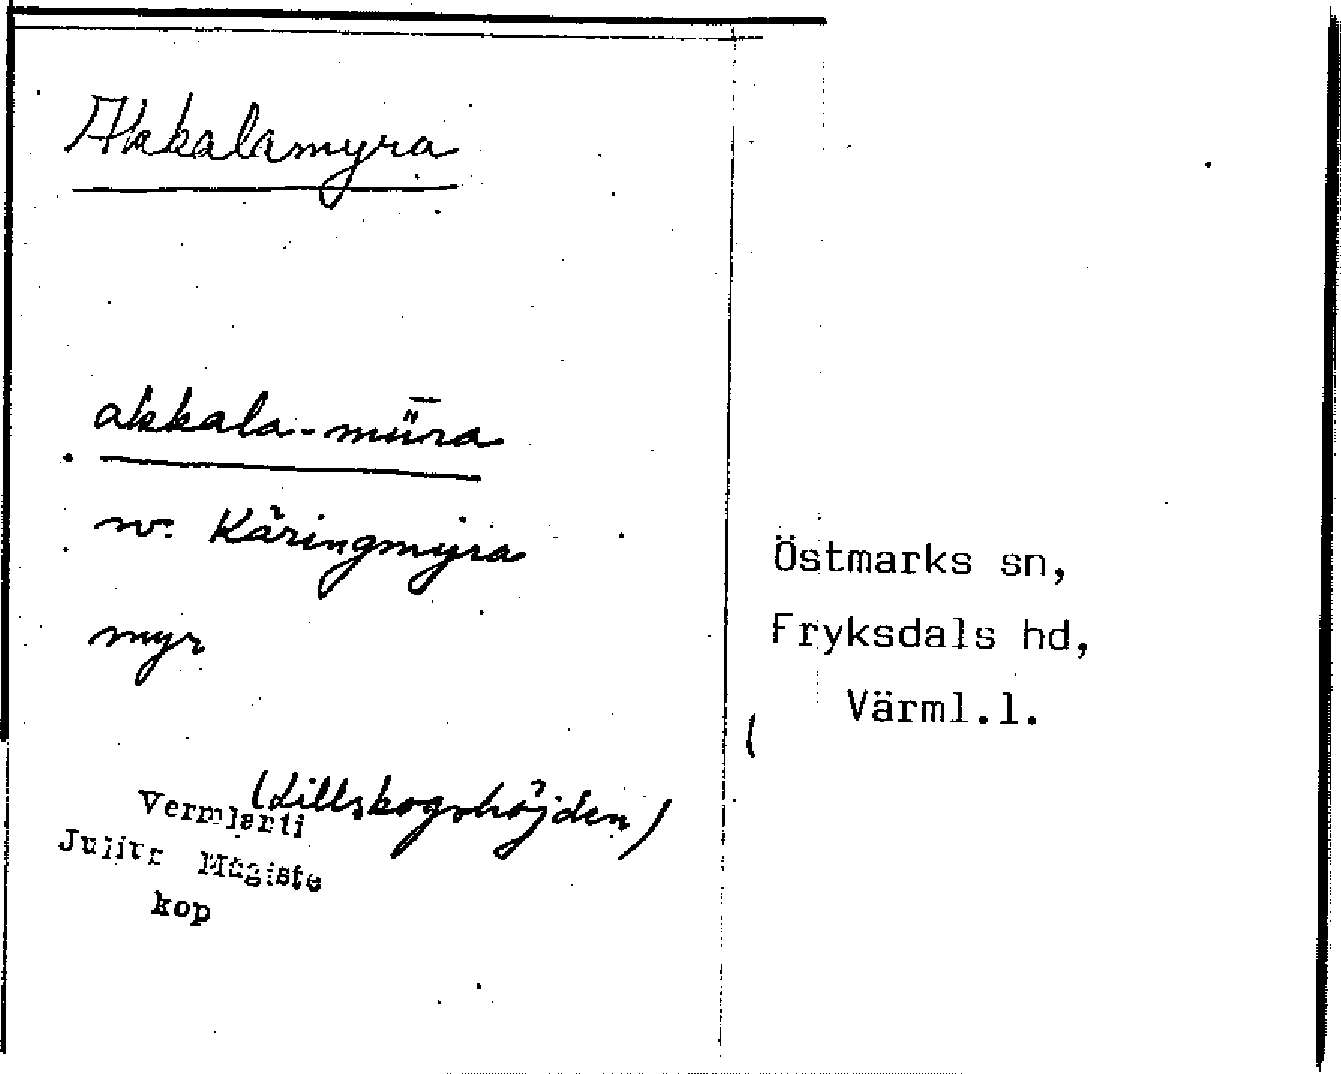 Akkalamyra
akkala-mǖra
nv. Käringmyra
myr
(Lillskogshöjden)
Julius Mägiste
kop
Östmarks sn,
Fryksdals hd,
Värml.l.